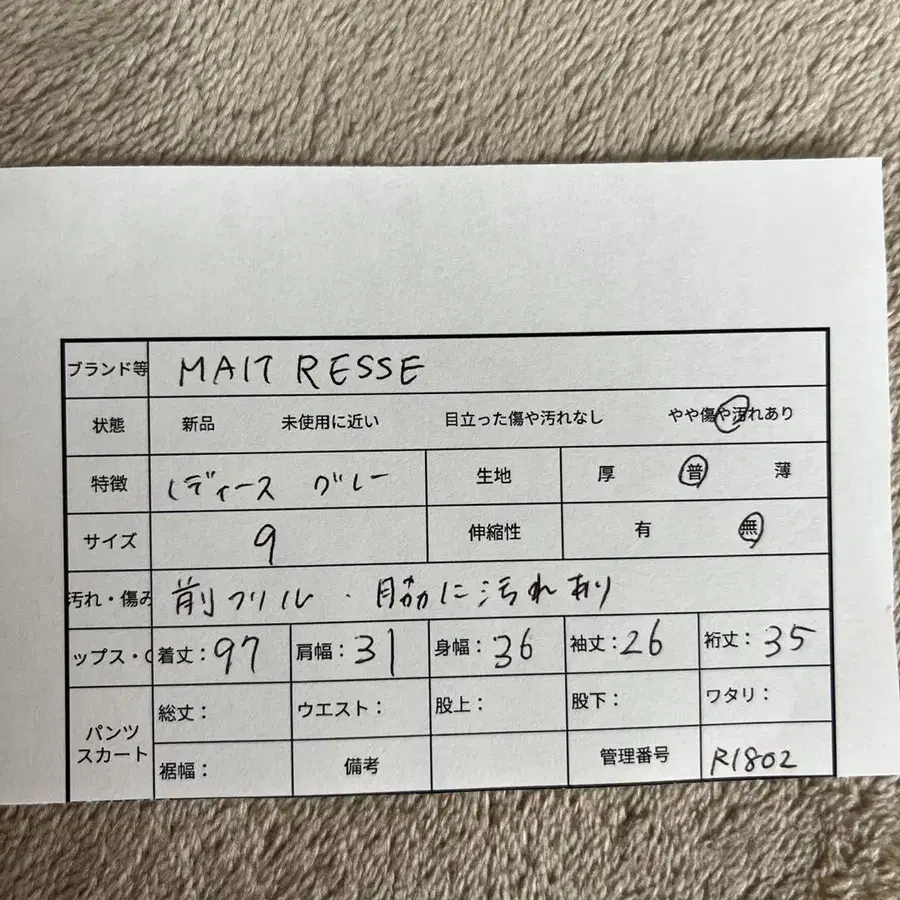 ブランド等 MAITRESSE
状態 新品 未使用に近い 目立った傷や汚れなし やや傷や汚れあり
特徴 レディース グレー 生地 厚 普 薄
サイズ 9 伸縮性 有 無
汚れ・傷み 前フリル・脇に汚れあり
ップス・ 着丈：97 肩幅：31 身幅：36 袖丈：26 裄丈：35
パンツ
スカート
総丈： ウエスト： 股上： 股下： ワタリ：
裾幅： 備考 管理番号 R1802